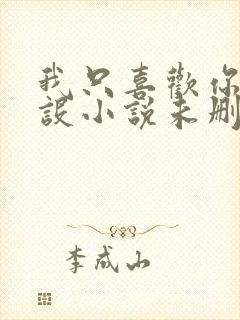 我只喜歡你
設小說未刪
李成山